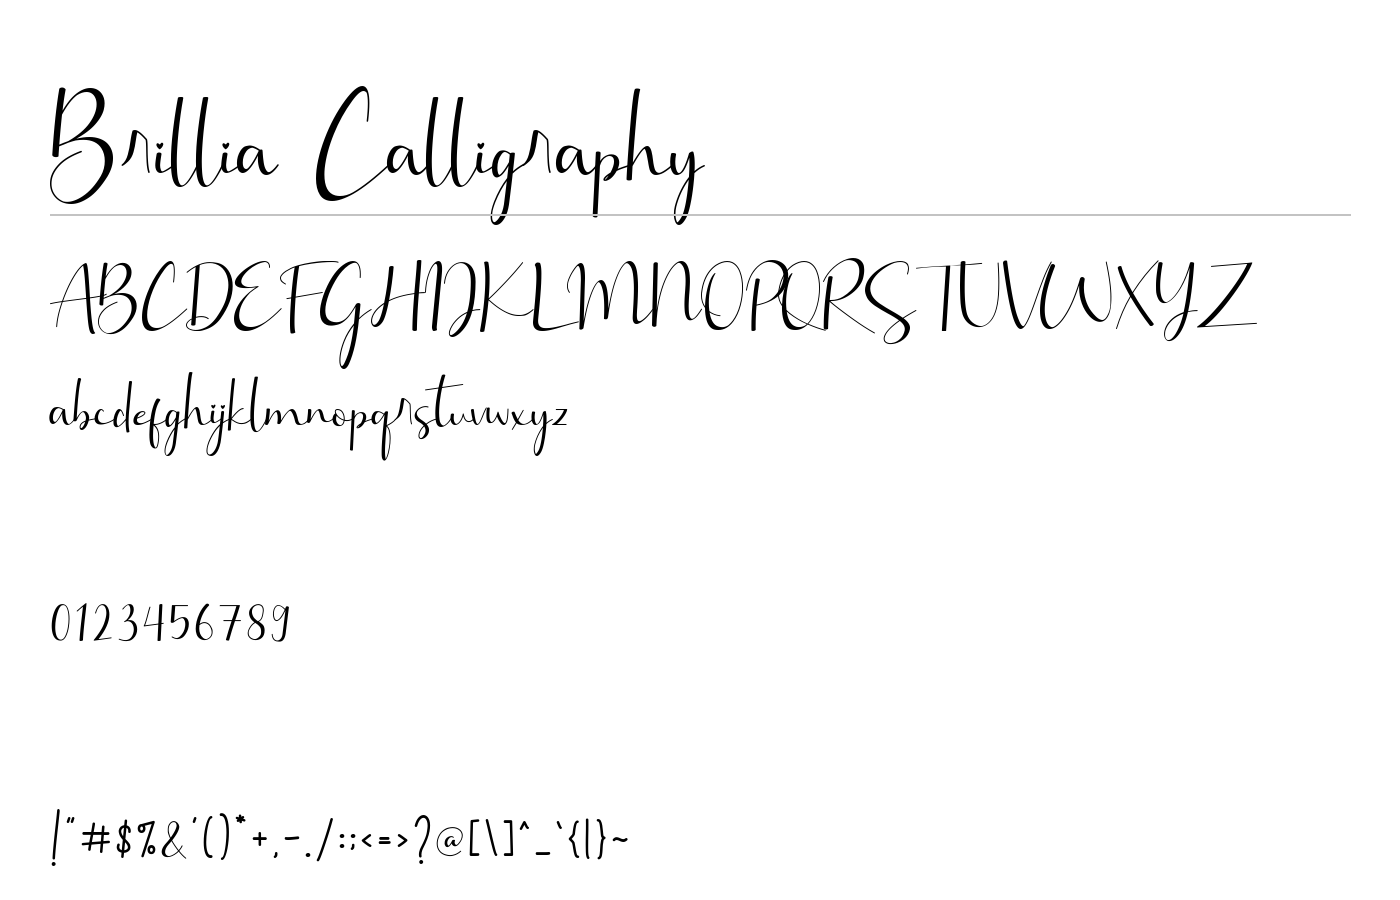 Brillia Calligraphy
ABCDEFGHIJKLMNOPQRSTUVWXYZ
abcdefghijklmnopqrstuvwxyz
0123456789
!"#$%&'()*+,-./:;<=>?@[\]^_`{|}~